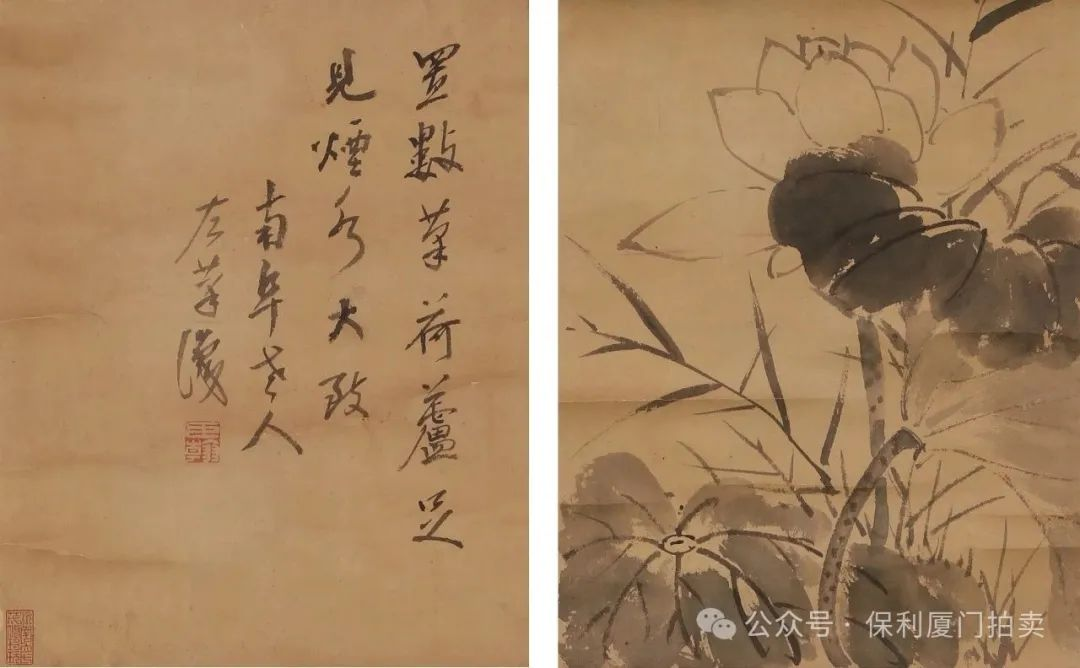 置數筆荷蘆足
見煙水大致
南阜老人
左筆識
公众号·保利厦门拍卖